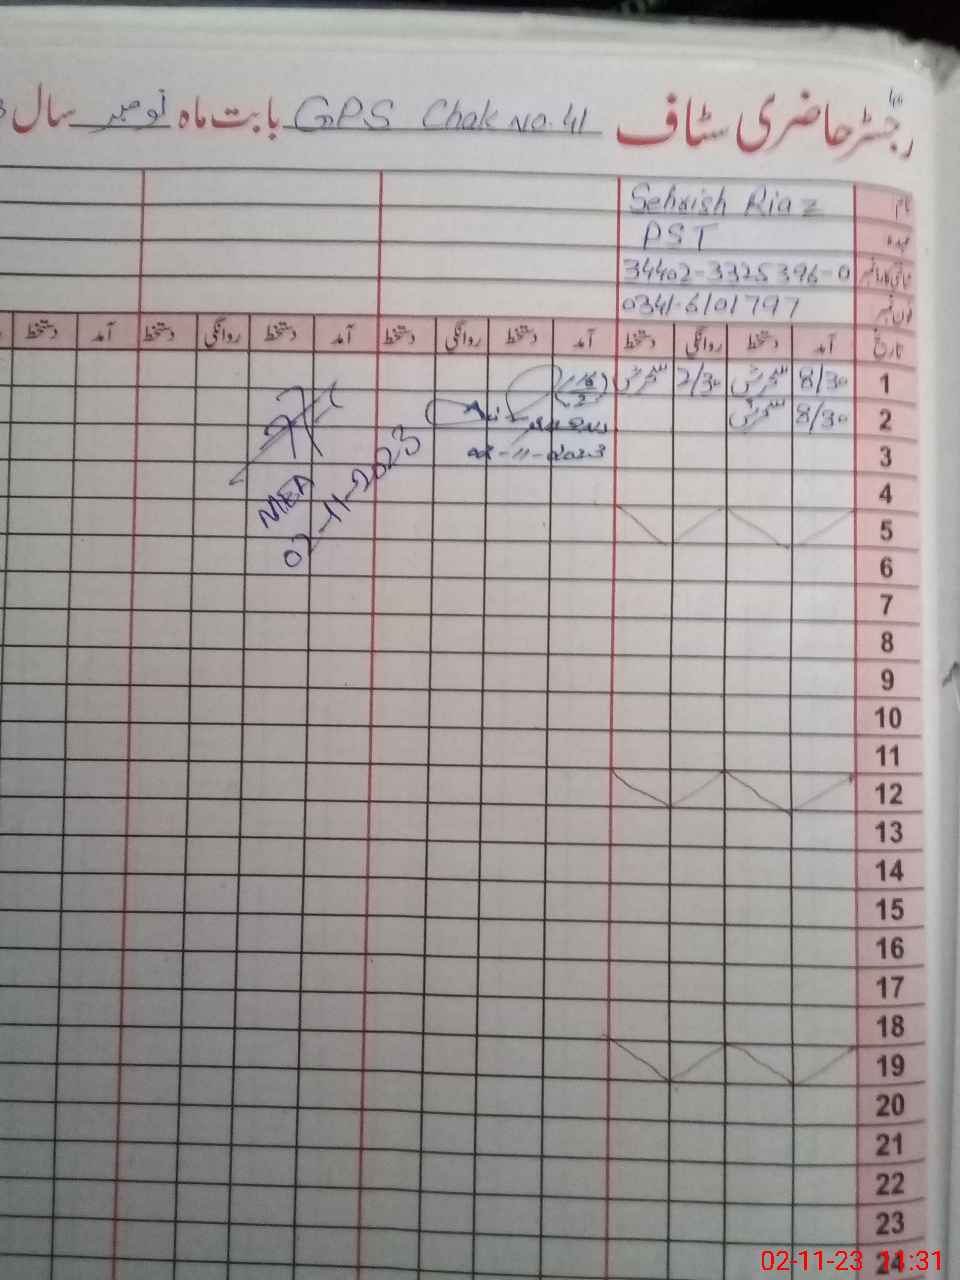 رجسٹر حاضری سٹاف GPS Chak No. 41 بابت ماہ نومبر سال
نام Sehrish Riaz
عہدہ PST
شناختی کارڈ نمبر 34402-3325396-0
فون نمبر 0341-6101797
تاریخ آمد دستخط روانگی دستخط آمد دستخط روانگی دستخط آمد دستخط روانگی دستخط آمد دستخط
1 8/30 سحرش 2/30 سحرش
2 8/30 سحرش
3
02-11-2023
4
MEA
02-11-2023
5
6
7
8
9
10
11
12
13
14
15
16
17
18
19
20
21
22
23
24
02-11-23 11:31